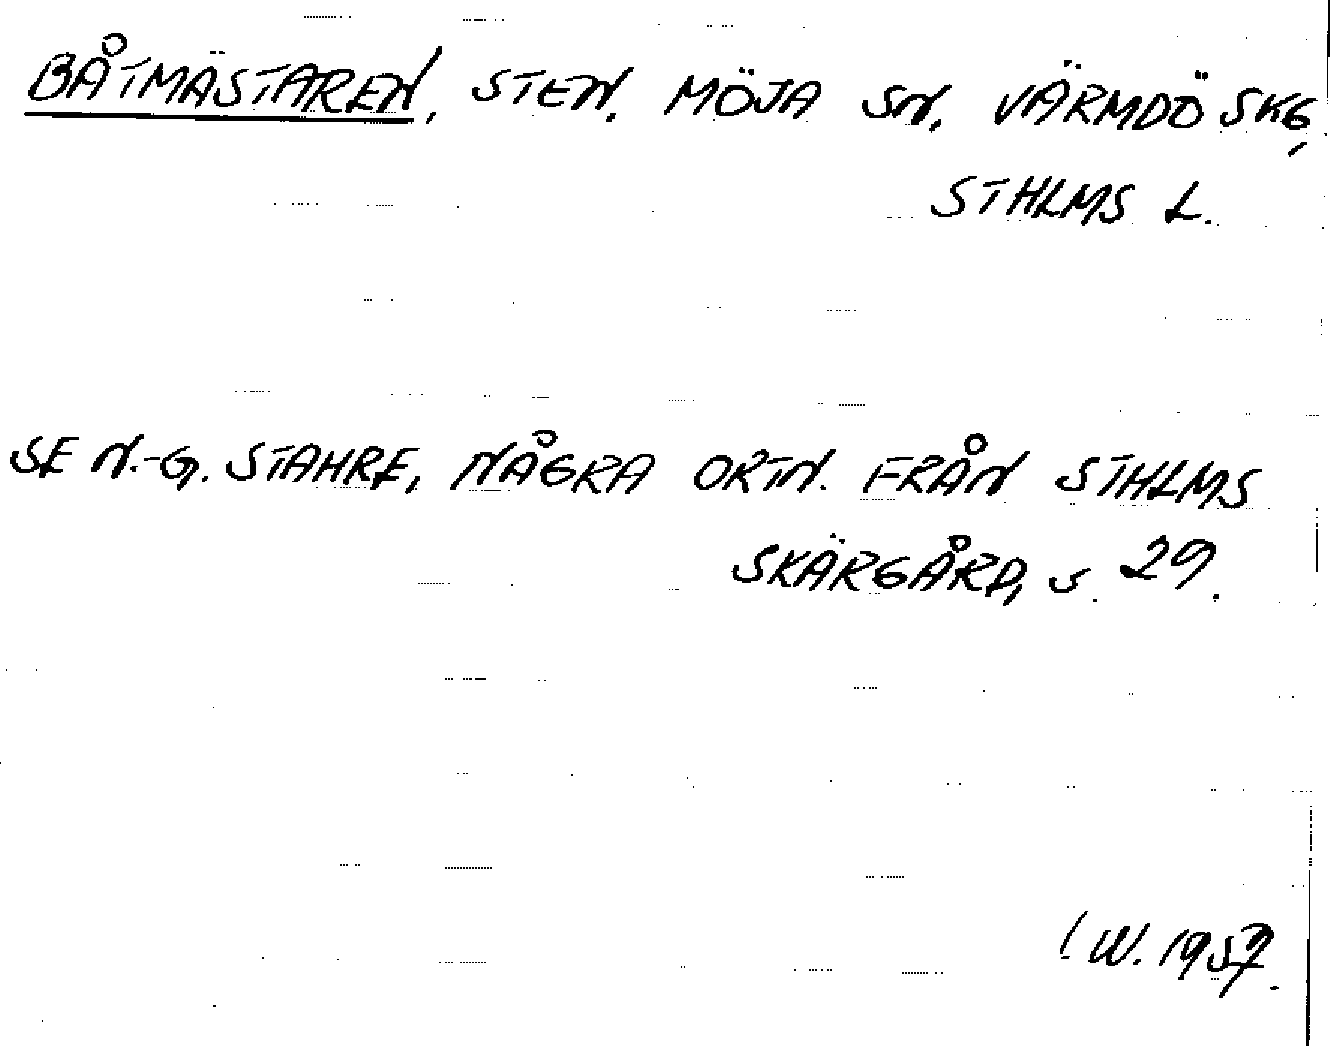 BÅTMÄSTAREN, STEN. MÖJA SN, VÄRMDÖ SKG,
STHLMS L.
SE N.-G. STAHRE, NÅGRA ORTN. FRÅN STHLMS
SKÄRGÅRD, S. 29.
I W. 1957.